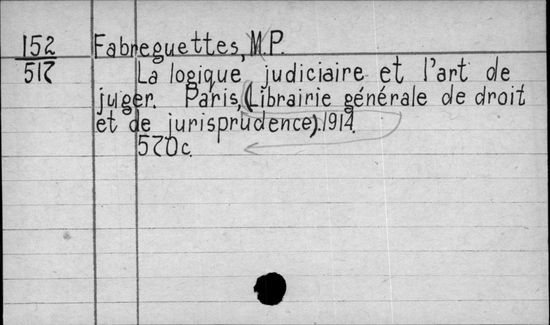 152 Fabreguettes, M.P.
517 La logique judiciaire et l'art de
juger. Paris, (Librairie générale de droit
et de jurisprudence). 1914.
570 c.